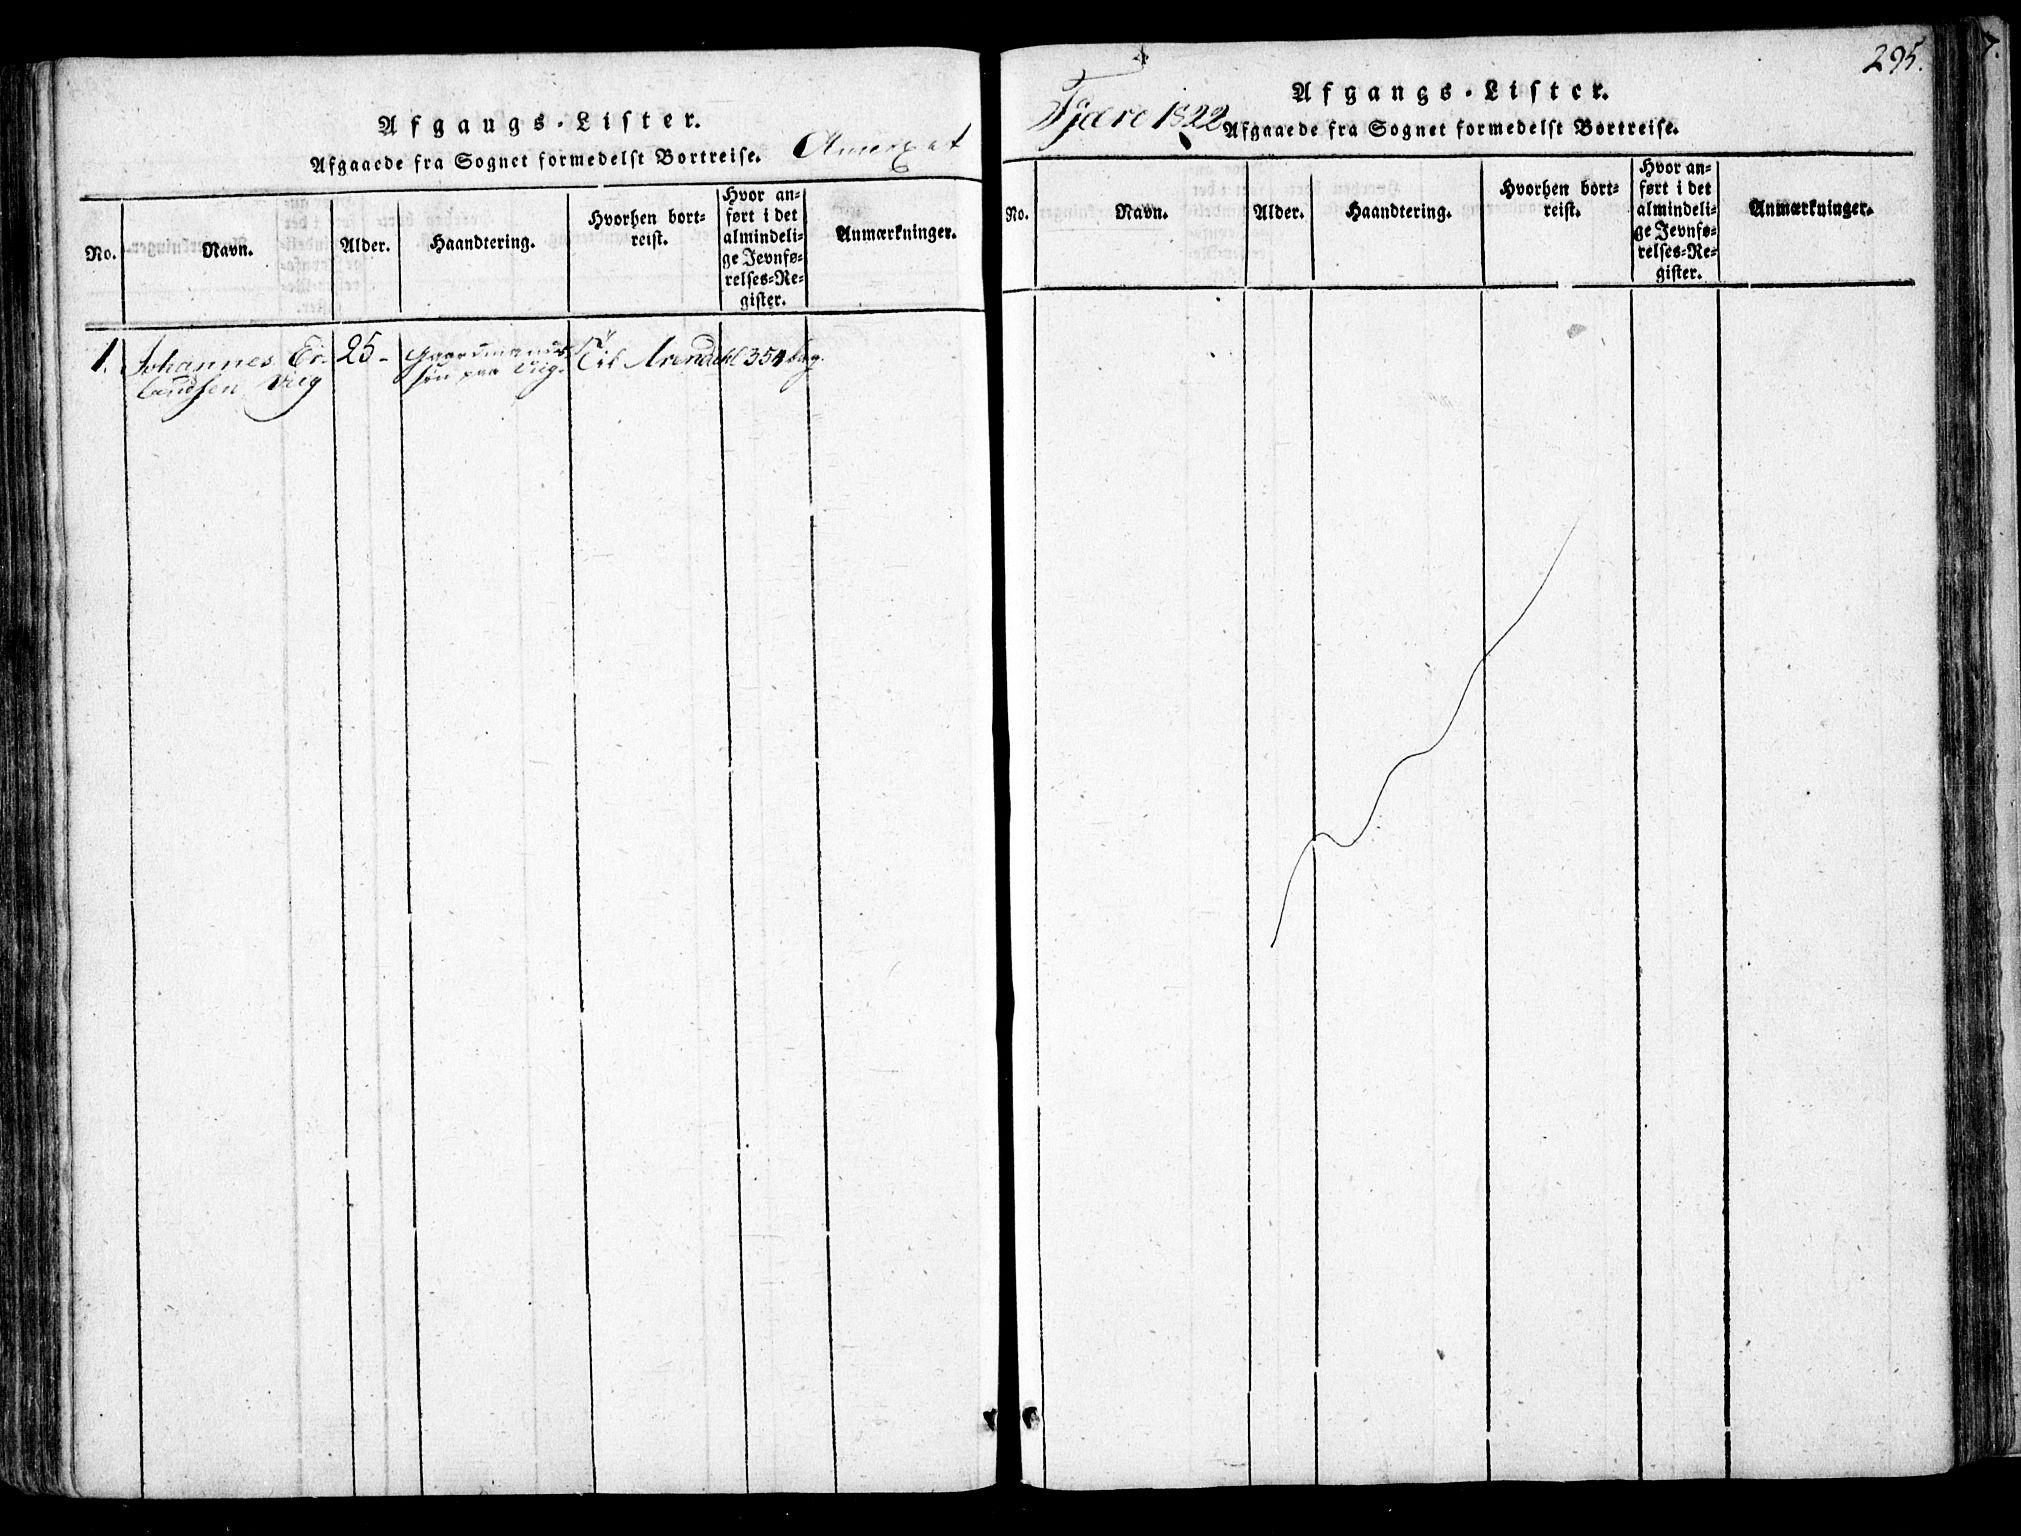 Afgangs-Lister.
Afgaaede fra Sognet formedelst Bortreise.
No.
Navn.
Alder.
Haandtering.
Hvorhen bort-
reist.
Hvor an-
ført i det
almindeli-
ge Jevnfø-
relses-Re-
gister.
Anmærkninger.
1. Johannes Er- 25- Gaardmands Til Arendahl 354 bag.
landsen Vig søn paa Viig.
295.
Fjære 1822
Afgangs-Lister.
Afgaaede fra Sognet formedelst Bortreise.
No.
Navn.
Alder.
Haandtering.
Hvorhen bort-
reist.
Hvor an-
ført i det
almindeli-
ge Jevnfø-
relses-Re-
gister.
Anmærkninger.